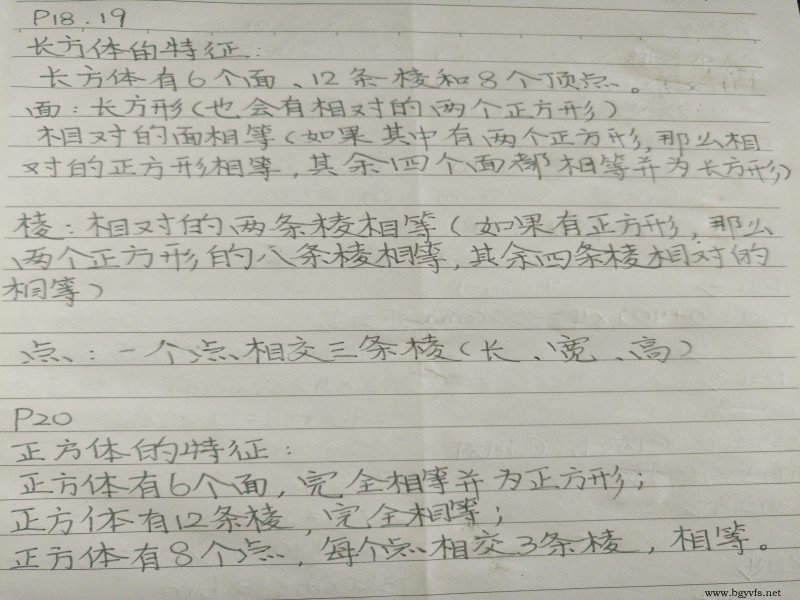 P18.19
长方体的特征:
长方体有6个面、12条棱和8个顶点。
面:长方形(也会有相对的两个正方形)
相对的面相等(如果其中有两个正方形,那么相
对的正方形相等,其余四个面都相等并为长方形)
棱:相对的两条棱相等(如果有正方形,那么
两个正方形的八条棱相等,其余四条棱相对的
相等)
点:一个点相交三条棱(长、宽、高)
P20
正方体的特征:
正方体有6个面,完全相等并为正方形;
正方体有12条棱,完全相等;
正方体有8个点,每个点相交3条棱,相等。
www.bgyvfs.net